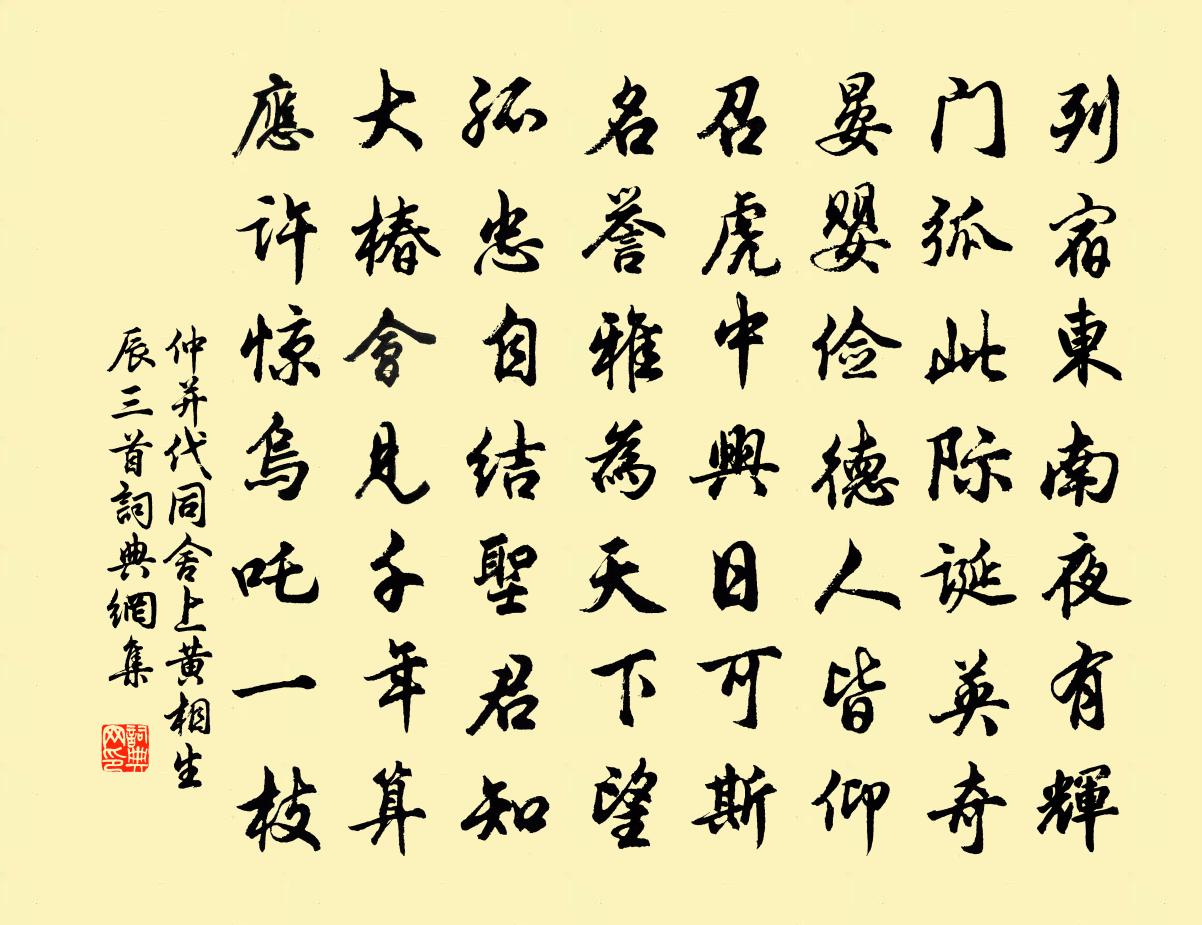 列宿東南夜有輝
门弧此际诞英奇
晏婴俭德人皆仰
召虎中興日可斯
名誉雅為天下望
孤忠自结聖君知
大椿會見千年算
應许惊烏吒一枝
仲并代同舍上黄相生
辰三首詞典網集
詞典网印